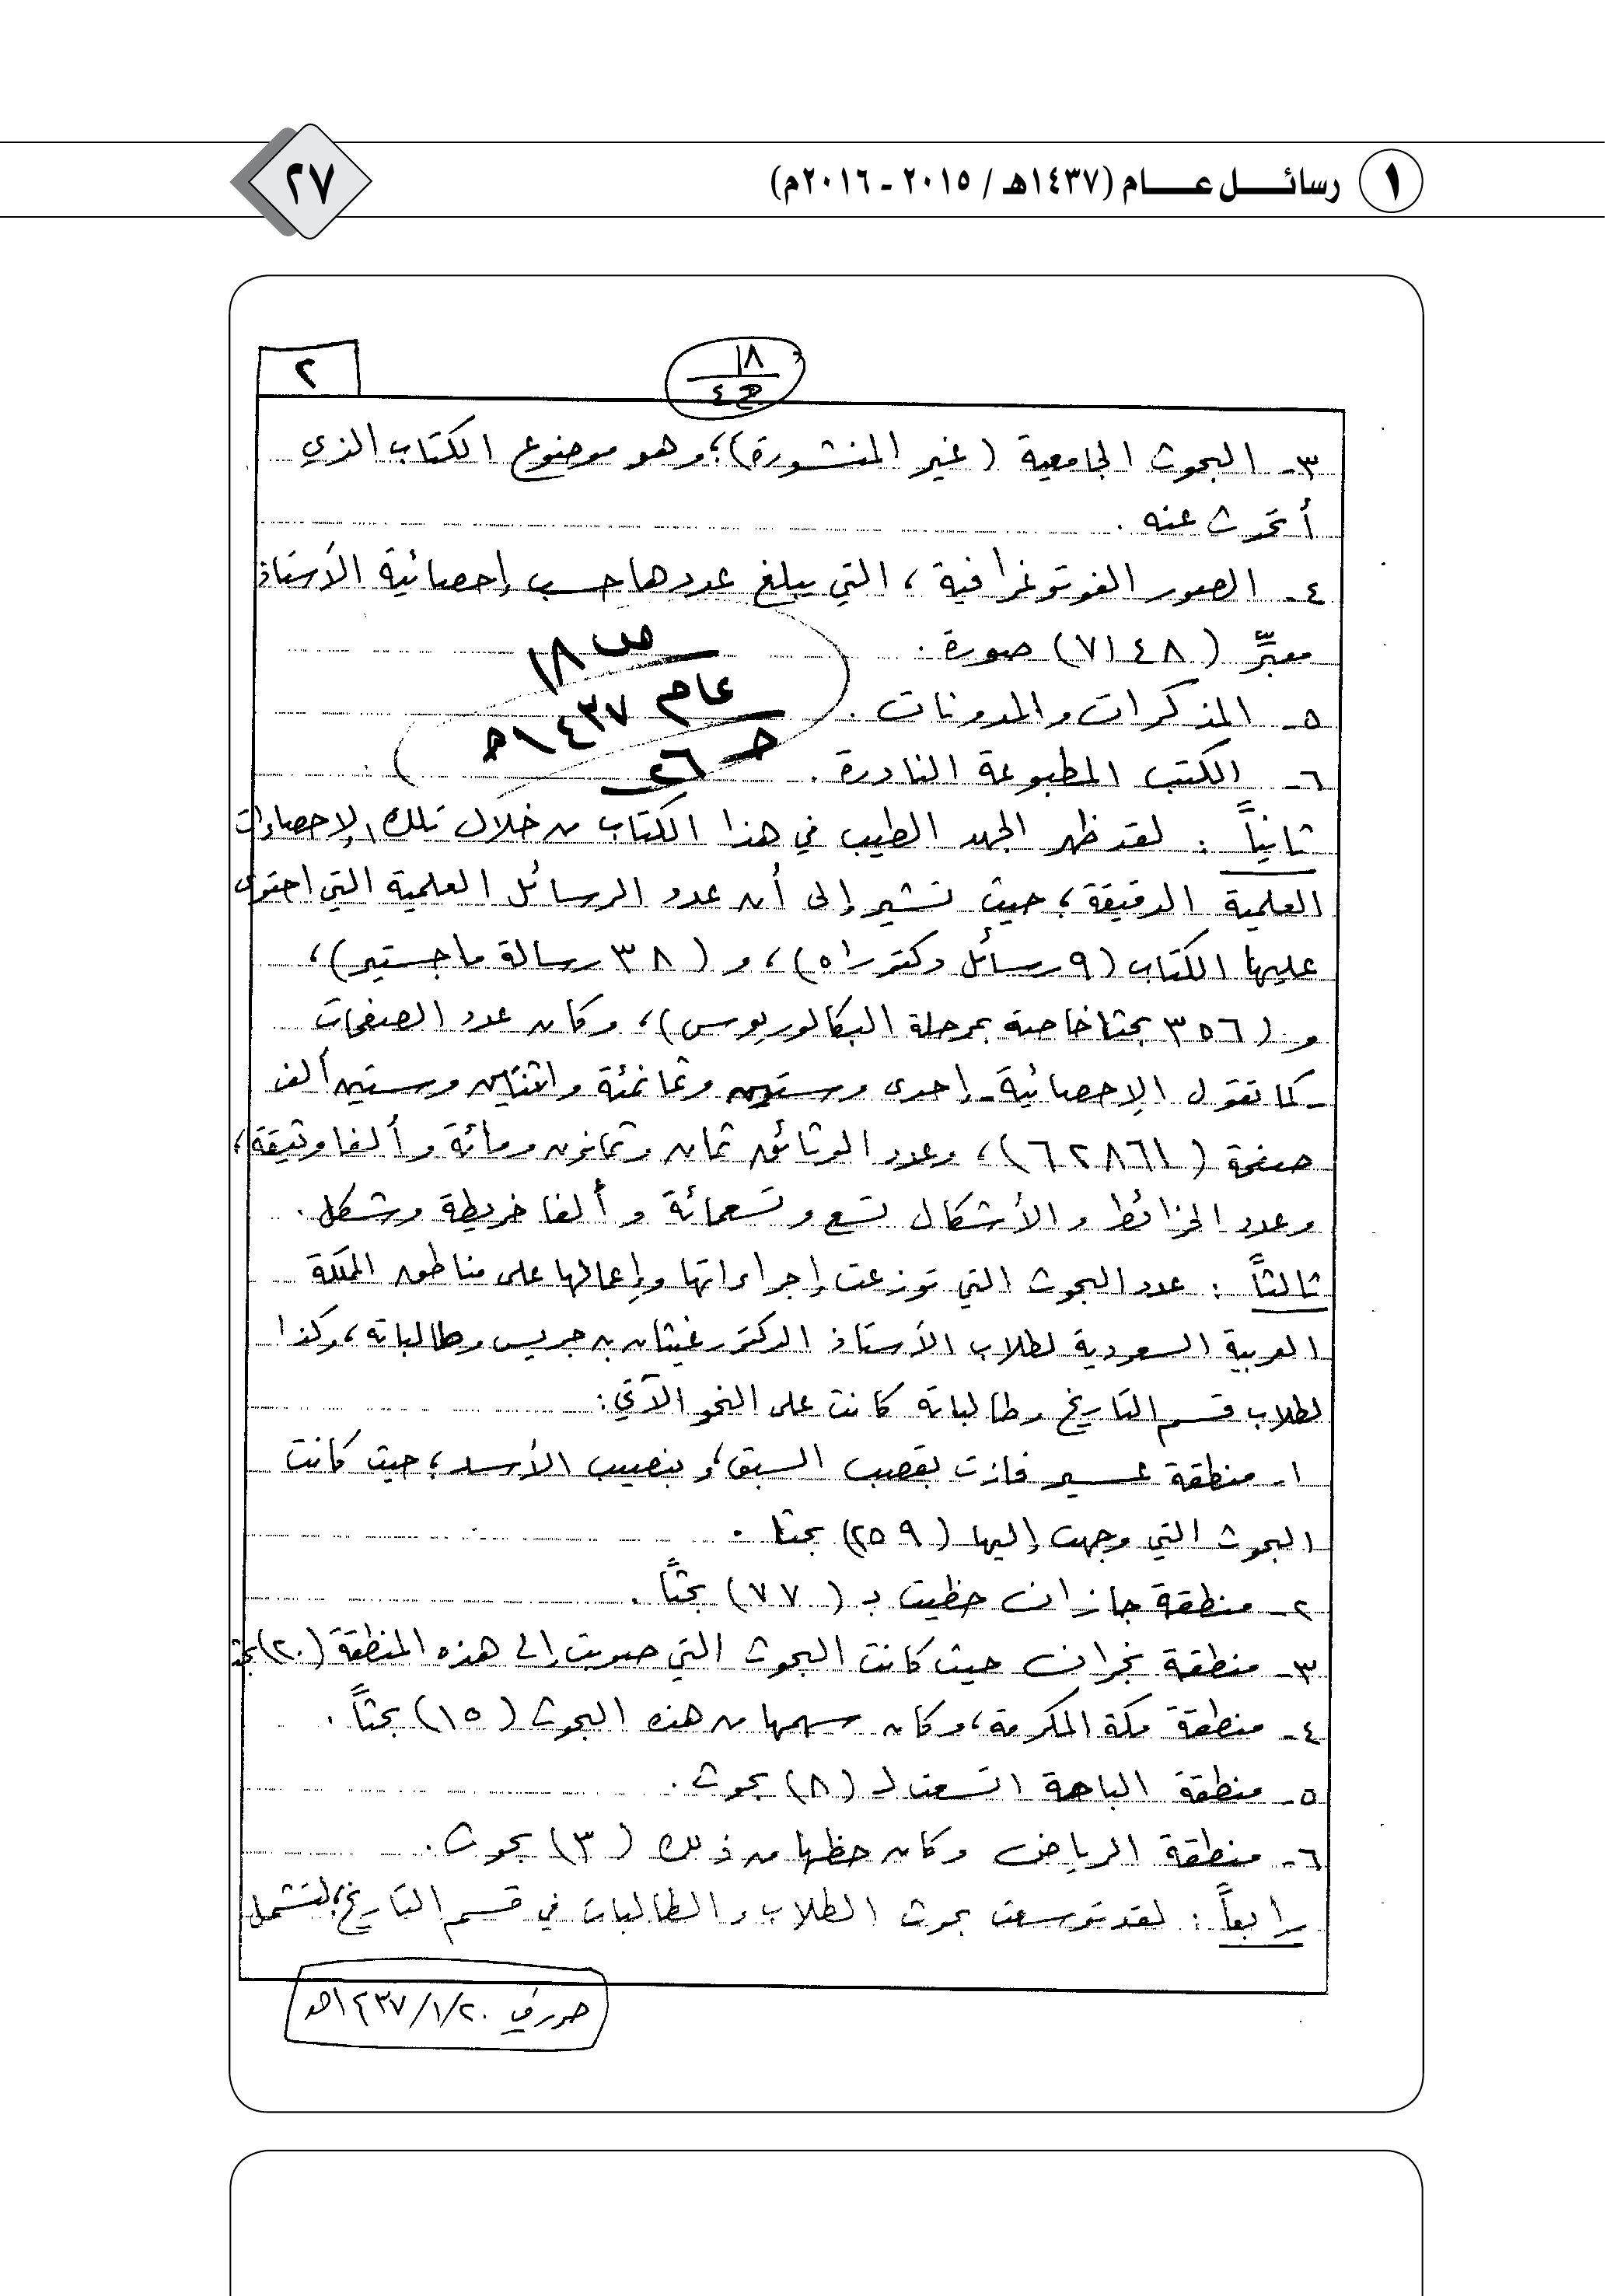 ١ رسائـــل عـــام (١٤٣٧هـ / ٢٠١٥ - ٢٠١٦م)
٢٧
١٨
ح٤
٢
٣- البحوث الجامعية (غير المنشورة)؛ وهو موضوع الكتاب الذي
أتحدث عنه .
٤- الصور الفوتوغرافية ، التي يبلغ عددها حسب إحصائية الأستاذ
معبِّر (٧١٤٨) صورة .
ص ١٨
عام ١٤٣٧هـ
٥- المذكرات والمدونات .
٦- الكتب المطبوعة النادرة .
ثانياً : لقد ظهر الجهد الطيب في هذا الكتاب من خلال تلك الإحصاءات
العلمية الدقيقة ؛ حيث تشير إلى أن عدد الرسائل العلمية التي احتوى
عليها الكتاب (٩ رسائل دكتوراه) ، و (٣٨ رسالة ماجستير) ،
و (٣٥٦ بحثا خاصة بمرحلة البكالوريوس) ، وكان عدد الصفحات
- كما تقول الإحصائية - إحدى وستين وثمانمئة واثنتين وستين ألف
صفحة (٦٢٨٦١) ، وعدد الوثائق ثمان وثمانون ومائة وألفا وثيقة ،
وعدد الخرائط والأشكال تسع وتسعمائة وألفا خريطة وشكل .
ثالثاً : عدد البحوث التي توزعت إجراءاتها وإعمالها على مناطق المملكة
العربية السعودية لطلاب الأستاذ الدكتور غيثان بن جريس وطالباته ، وكذا
لطلاب قسم التاريخ وطالباته كانت على النحو الآتي :
١- منطقة عسير فازت بقصب السبق ، وبنصيب الأسد ؛ حيث كانت
البحوث التي وجهت إليها (٢٥٩) بحثا .
٢- منطقة جازان حظيت بـ (٧٧) بحثاً .
٣- منطقة نجران حيث كانت البحوث التي صوبت إلى هذه المنطقة (٢٠) بحثا
٤- منطقة مكة المكرمة ، وكان سهمها من هذه البحوث (١٥) بحثاً .
٥- منطقة الباحة اتسعت لـ (٨) بحوث .
٦- منطقة الرياض وكان حظها من ذلك (٣) بحوث .
رابعاً : لقد توسعت بحوث الطلاب والطالبات في قسم التاريخ ؛ لتشمل
حرر في ١٤٣٧/١/٢٠هـ